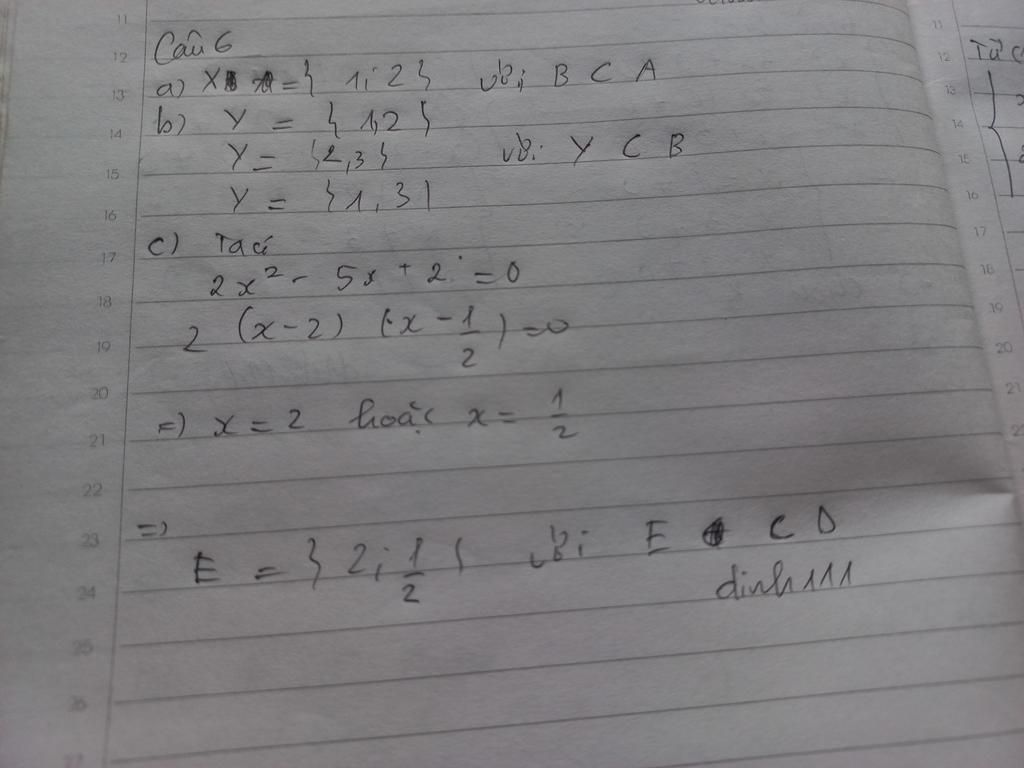 Câu 6
a) X = { 1; 2 } với B ⊂ A
b) Y = { 1,2 }
Y = { 2,3 } với Y ⊂ B
Y = { 1, 3 }
c) Ta có
2x² - 5x + 2 = 0
2 (x - 2) (x - 1/2) = 0
=) x = 2 hoặc x = 1/2
=)
E = { 2; 1/2 } với E ⊂ D
dinh111
11
12
13
14
15
16
17
18
19
20
21
22
23
24
25
26
27
Từ
11
12
13
14
15
16
17
18
19
20
21
22